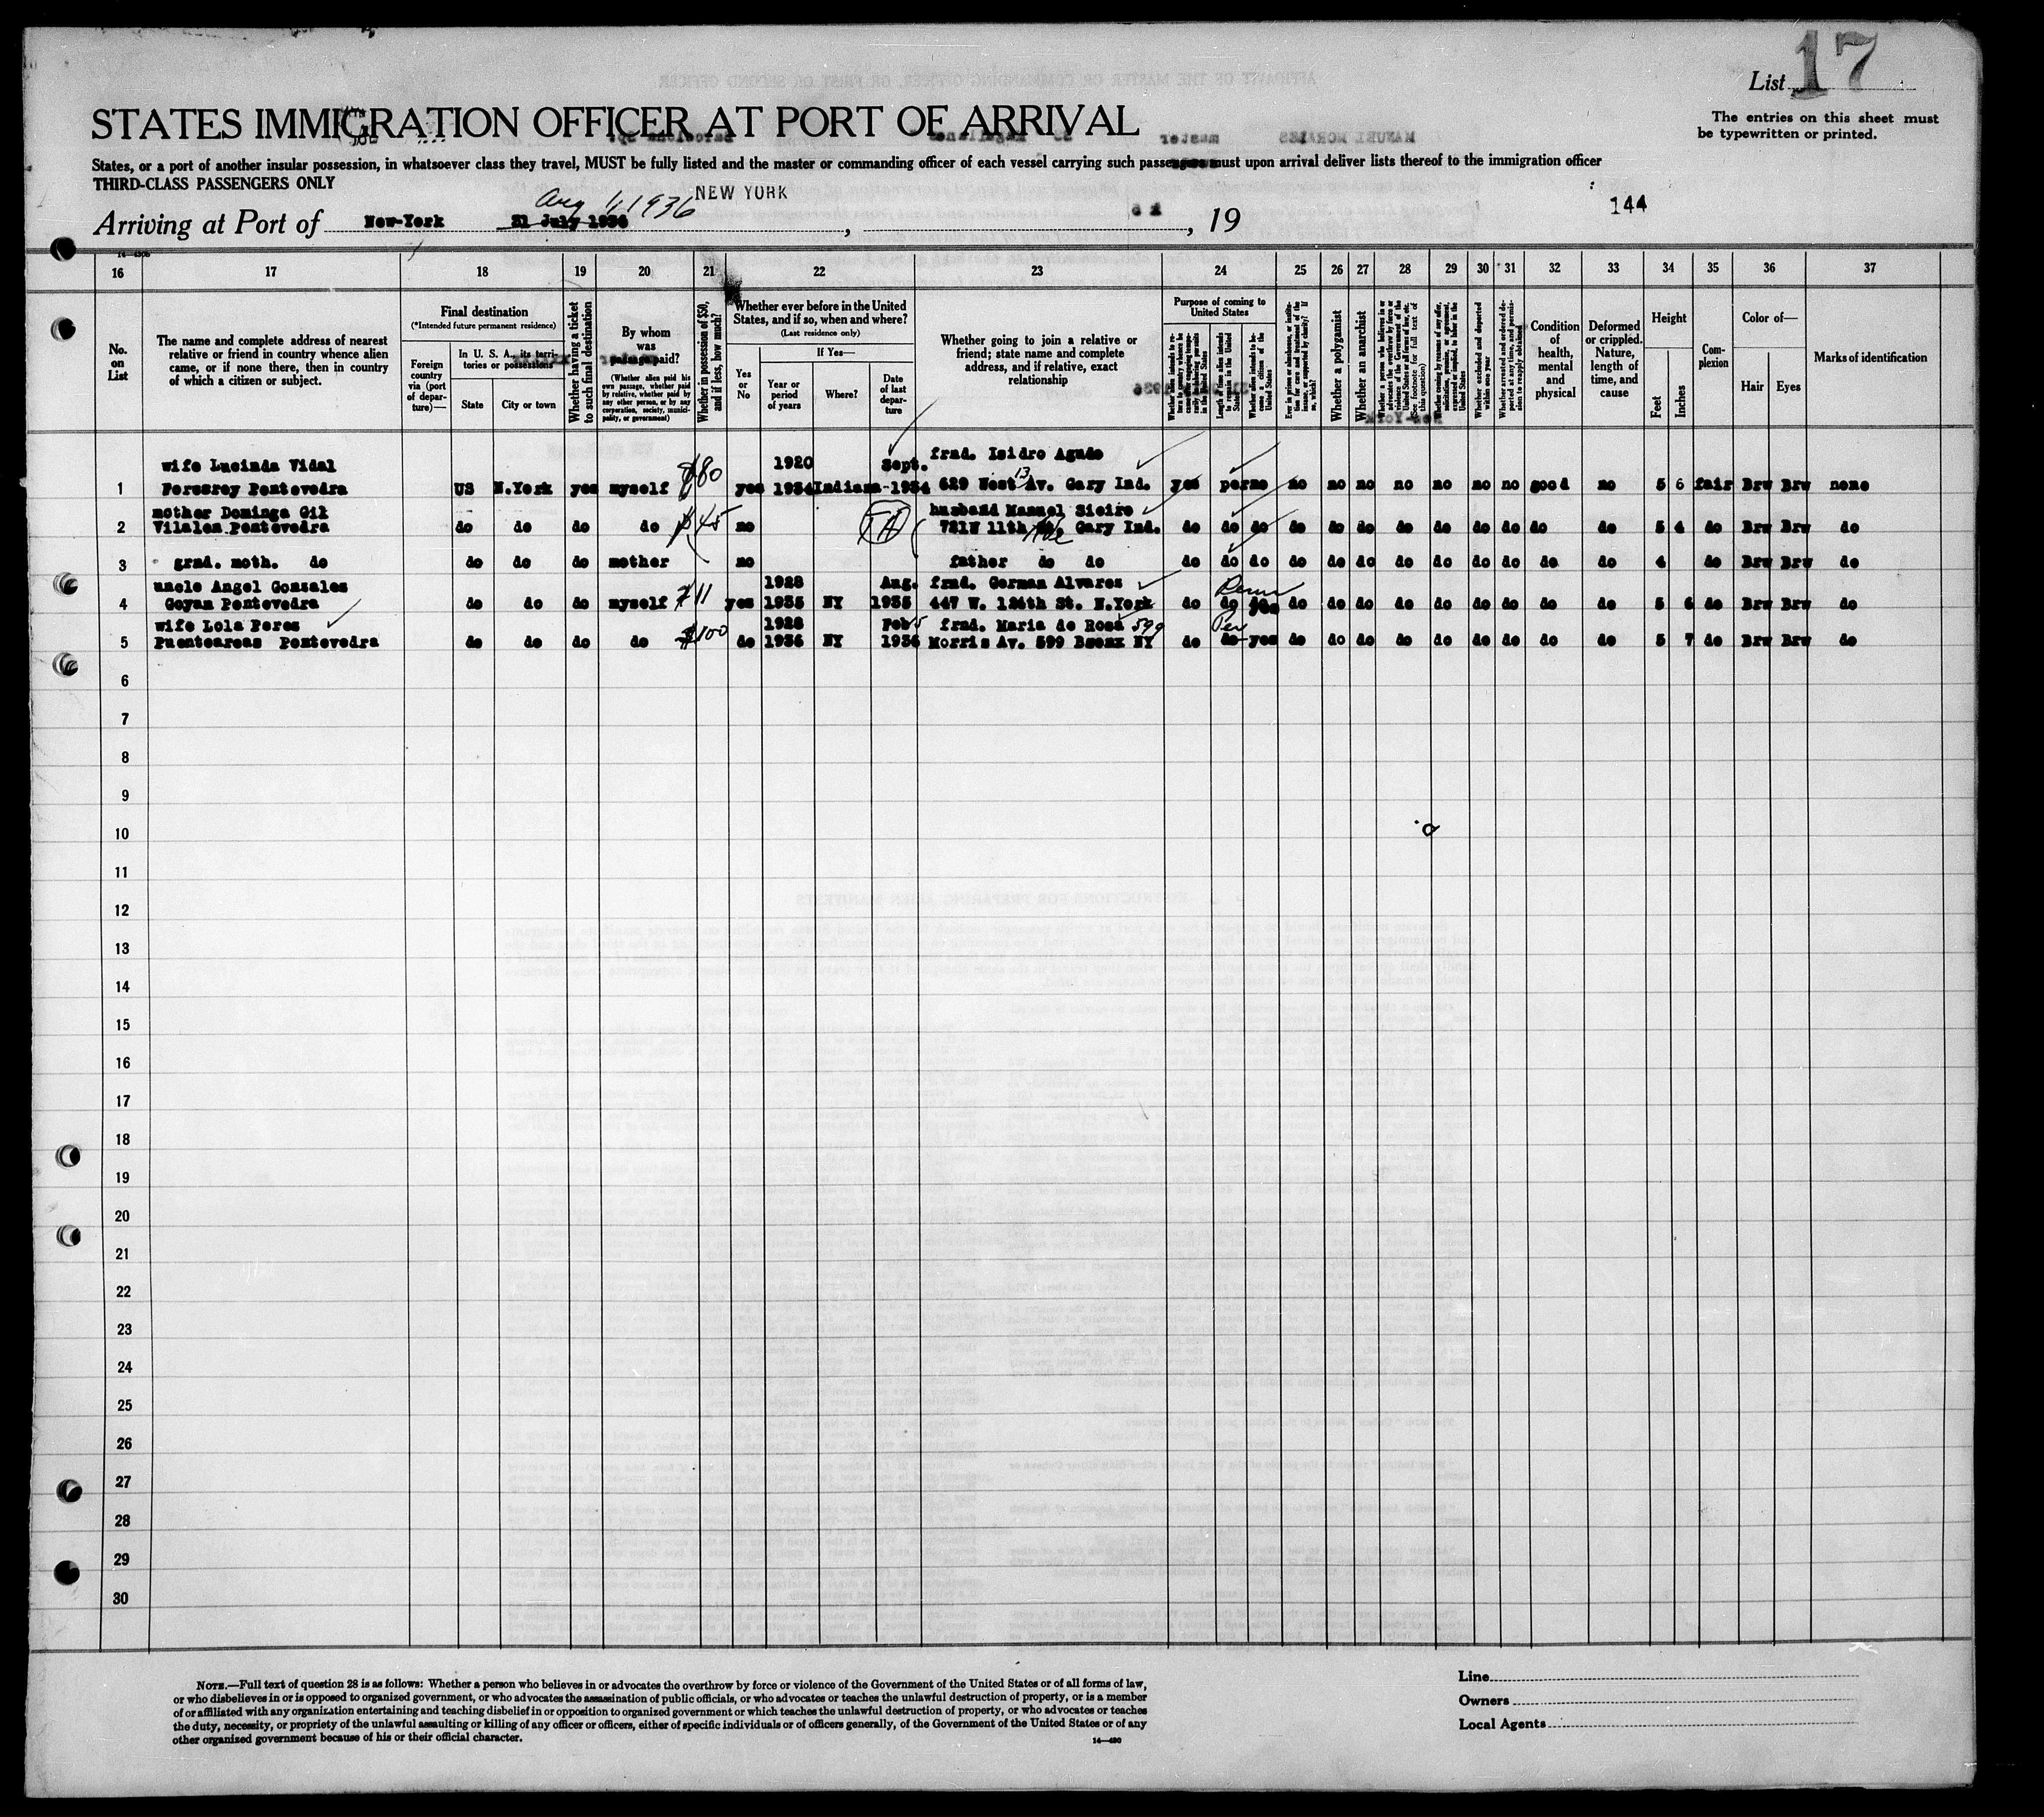 List 17
The entries on this sheet must
be typewritten or printed.
STATES IMMIGRATION OFFICER AT PORT OF ARRIVAL
States, or a port of another insular possession, in whatsoever class they travel, MUST be fully listed and the master or commanding officer of each vessel carrying such passengers must upon arrival deliver lists thereof to the immigration officer
THIRD-CLASS PASSENGERS ONLY
NEW YORK
Aug 1, 1936
144
Arriving at Port of New-York 21 July 1936, , 19
16 17 18 19 20 21 22 23 24 25 26 27 28 29 30 31 32 33 34 35 36 37
No. on List
The name and complete address of nearest relative or friend in country whence alien came, or if none there, then in country of which a citizen or subject.
Final destination
(*Intended future permanent residence)
Foreign country via (port of departure)—
In U. S. A., its territories or possessions
State
City or town
Whether having a ticket to such final destination
By whom was passage paid?
(Whether alien paid his own passage, whether paid by relative, whether paid by any other person, or by any corporation, society, municipality, or government)
Whether in possession of $50, and if less, how much?
Whether ever before in the United States, and if so, when and where?
(Last residence only)
Yes or No
If Yes—
Year or period of years
Where?
Date of last departure
Whether going to join a relative or friend; state name and complete address, and if relative, exact relationship
Purpose of coming to United States
Length of time alien intends to remain in the United States
Whether alien intends to become a citizen of the United States
Whether a polygamist
Whether an anarchist
Whether excluded and deported within one year
Condition of health, mental and physical
Deformed or crippled. Nature, length of time, and cause
Height
Feet
Inches
Complexion
Color of—
Hair
Eyes
Marks of identification
wife Lucinda Vidal 1920 Sept. frnd. Isidro Agudo
1 Pontevedra US N.York yes myself $80 yes 1934 Indiana 1934 629 West 13 Av. Gary Ind. yes perm no no no no no no no no good no 5 6 fair Brw Brw none
mother Dominga Gil husband Manuel Sieiro
2 Vilalen Pontevedra do do do do $45 no 721W 11th Ave Gary Ind. do do do do do do do do do do do do 5 4 do Brw Brw do
3 grnd. moth. do do do do mother no father do do do do do do do do do do do do do do 4 do Brw Brw do
uncle Angel Gonzales 1928 Aug. frnd. German Alvares Perm
4 Goyan Pontevedra do do do myself 11 yes 1935 NY 1935 447 W. 124th St. N.York do do yes do do do do do do do do do 5 6 do Brw Brw do
wife Lola Peres 1928 Feb 5 frnd. Maria de Rosa 599 Per
5 Puenteareas Pontevedra do do do do $100 do 1936 NY 1936 Morris Av. 599 Bronx NY do do yes do do do do do do do do do 5 7 do Brw Brw do
6
7
8
9
10
11
12
13
14
15
16
17
18
19
20
21
22
23
24
25
26
27
28
29
30
NOTE.—Full text of question 28 is as follows: Whether a person who believes in or advocates the overthrow by force or violence of the Government of the United States or of all forms of law,
or who disbelieves in or is opposed to organized government, or who advocates the assassination of public officials, or who advocates or teaches the unlawful destruction of property, or is a member
of or affiliated with any organization entertaining and teaching disbelief in or opposition to organized government or which teaches the unlawful destruction of property, or who advocates or teaches
the duty, necessity, or propriety of the unlawful assaulting or killing of any officer or officers, either of specific individuals or of officers generally, of the Government of the United States or of any
other organized government because of his or their official character.
14—430
Line
Owners
Local Agents